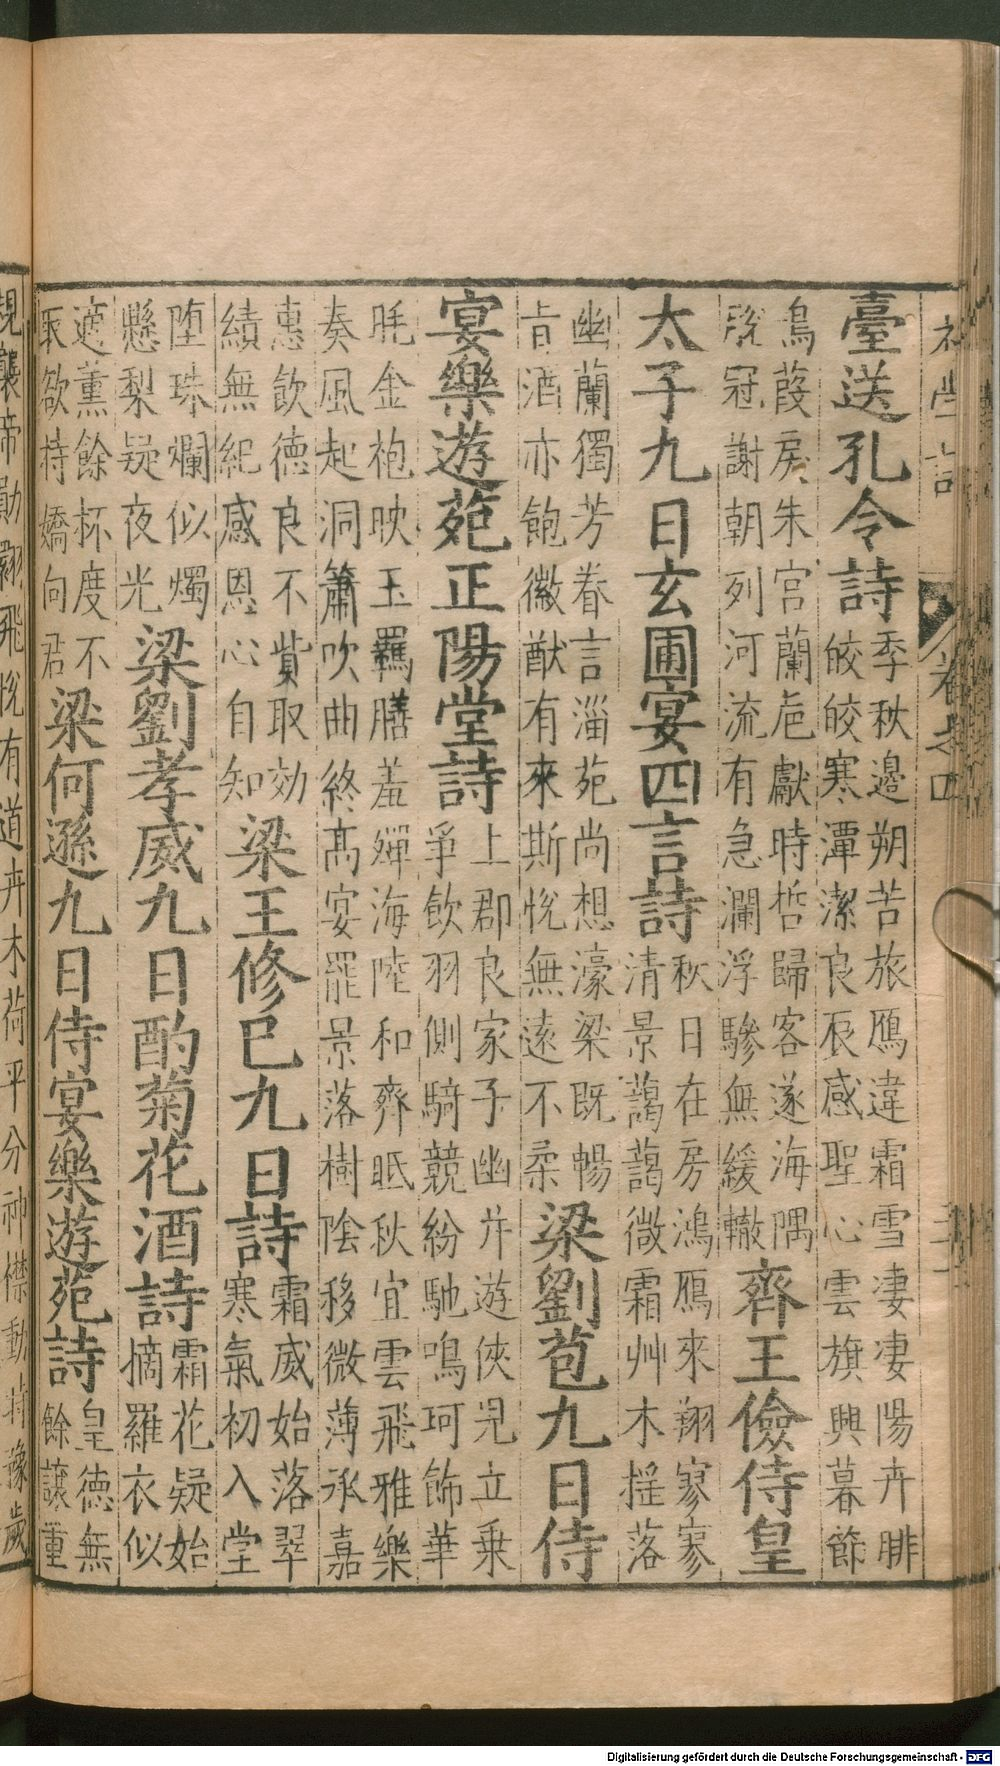 卷之四
臺送孔令詩
季秋邊朔苦旅鴈違霜雪淒淒陽卉腓
皎皎寒潭潔良辰感聖心雲旗興暮節
鳥葭房朱宮蘭巵獻時哲歸客遂海隅
脫冠謝朝列河流有急瀾浮驂無緩轍
齊王儉侍皇
太子九日玄圃宴四言詩
秋日在房鴻鴈來翔寥寥
清景藹藹微霜艸木揺落
幽蘭獨芳眷言淄苑尚想濠梁既暢
旨酒亦飽徽猷有來斯悅無遠不柔
梁劉苞九日侍
宴樂遊苑正陽堂詩
上郡良家子幽并遊俠兒立乗
爭飲羽側騎競紛馳鳴珂飾華
毦金袍映玉羈膳羞殫海陸和齊眡秋宜雲飛雅樂
奏風起洞簫吹曲終高宴罷景落樹陰移微薄承嘉
惠飲德良不貲取効
績無紀感恩心自知
梁王修巳九日詩
霜威始落翠
寒氣初入堂
堕珠爛似燭
懸梨疑夜光
梁劉孝威九日酌菊花酒詩
霜花疑始
摘羅衣似
適薫餘杯度不
取欲持嬌向君
梁何遜九日侍宴樂遊苑詩
皇德無
餘讓重
規襲帝勛翺飛悅有道卉木荷平分神襟動時豫歲
Digitalisierung gefördert durch die Deutsche Forschungsgemeinschaft - DFG